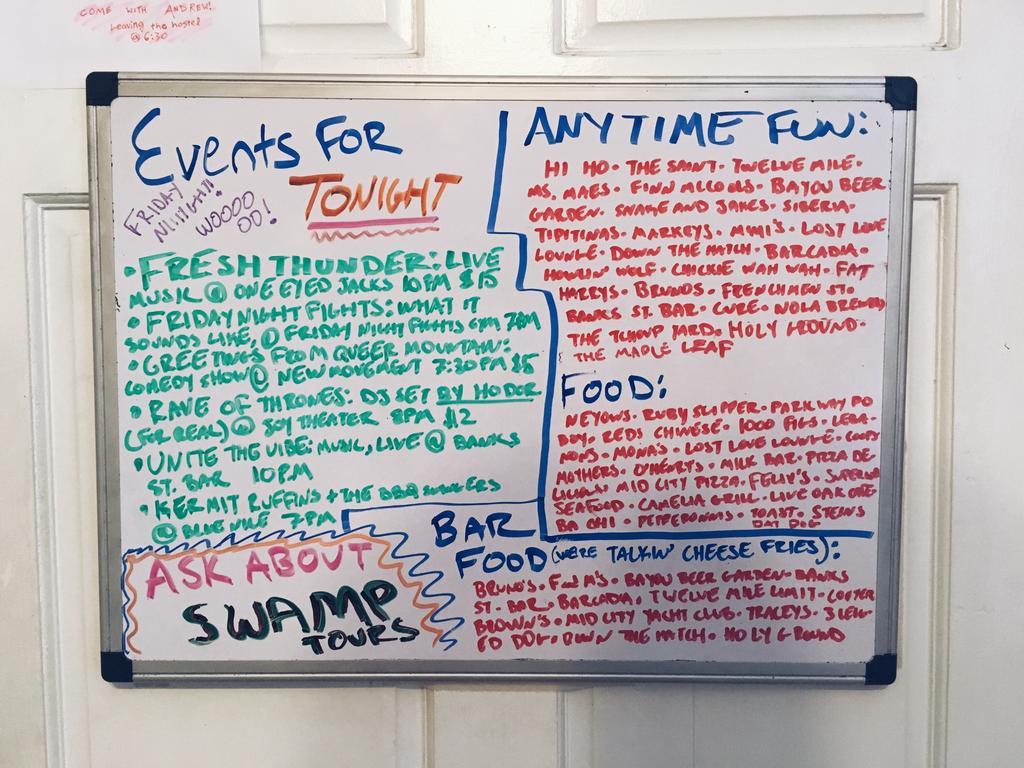 COME WITH ANDREW!
Leaving the hostel
@ 6:30
Events FOR
TONIGHT
FRIDAY
NIIIIGHT!!
WOOOO
OO!
• FRESH THUNDER: LIVE
MUSIC @ ONE EYED JACKS 10PM $15
• FRIDAY NIGHT FIGHTS: WHAT IT
SOUNDS LIKE, @ FRIDAY NIGHT FIGHTS GYM 7PM
• GREETINGS FROM QUEER MOUNTAIN:
COMEDY SHOW @ NEW MOVEMENT 7:30PM $5
• RAVE OF THRONES: DJ SET BY HODOR
(FOR REAL) @ JOY THEATER 8PM $12
• UNITE THE VIBE: MUSIC, LIVE @ BANKS
ST. BAR 10PM
• KERMIT RUFFINS + THE BBQ SWINGERS
@ BLUE NILE 7PM
ASK ABOUT
SWAMP
TOURS
ANYTIME FUN:
HI HO • THE SAINT • TWELVE MILE •
MS. MAES • FINN MCCOOLS • BAYOU BEER
GARDEN • SNAKE AND JAKES • SIBERIA •
TIPITINAS • MARKEYS • MIMI'S • LOST LOVE
LOUNGE • DOWN THE HATCH • BARCADIA •
HOWLIN' WOLF • CHICKIE WAH WAH • FAT
HARRYS • BRUNOS • FRENCHMEN ST. •
BANKS ST. BAR • CURE • NOLA BREWING
THE TCHOUP YARD • HOLY GROUND •
THE MAPLE LEAF
FOOD:
NEYOWS • RUBY SLIPPER • PARKWAY PO
BOY • REDS CHINESE • 1000 FIGS • LEBA-
NONS • MONA'S • LOST LOVE LOUNGE •
MOTHERS • O'HENRYS • MILK BAR • PIZZA DE-
LICIOUS MID CITY PIZZA • FELIX'S •
SEAFOOD • CAMELIA GRILL • LIVE OAK CAFE
BA CHI • PEPPERONIS • TOAST • STEINS
DAT DOG
BAR
FOOD (WE'RE TALKIN' CHEESE FRIES):
BRUNO'S • F&M'S • BAYOU BEER GARDEN • BANKS
ST. BAR • BARCADIA, TWELVE MILE LIMIT • COOTER
BROWN'S • MID CITY YACHT CLUB • TRACEYS • 3 LEGG-
ED DOG • DOWN THE HATCH • HOLY GROUND